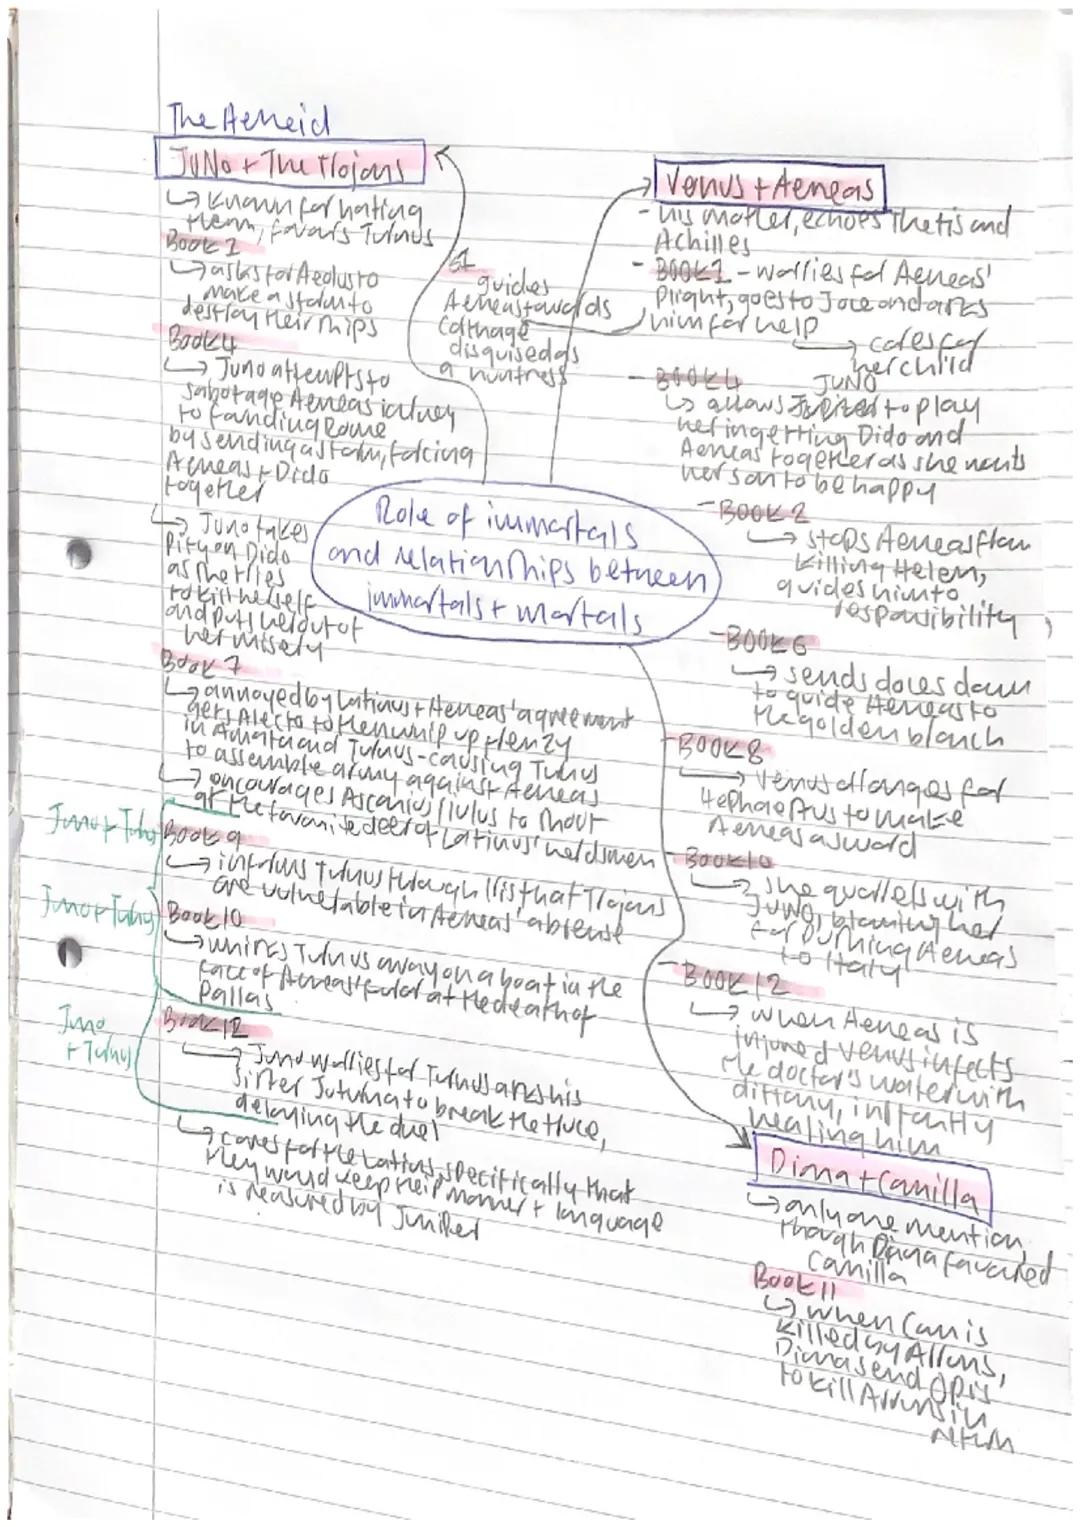 The Aeneid
JUNO + The Trojans
↳ known for hating
them, favours Turnus
Book 1
↳ asks for Aeolus to
make a storm to
destroy their ships
Book 4
↳ Juno attempts to
sabotage Aeneas journey
to founding Rome
by sending a storm, forcing
Aeneas + Dido
together
↳ Juno takes
Pity on Dido
as she tries
to kill herself
and puts her out of
her misery
Book 7
↳ annoyed by Latinus + Aeneas' agreement
gets Alecto to then whip up frenzy
in Amata and Turnus - causing Turnus
to assemble army against Aeneas
↳ encourages Ascanius/Iulus to shoot
at the favourite deer of Latinus' herdsmen
Juno + Turnus
Book 9
↳ informs Turnus through Iris that Trojans
are vulnerable in Aeneas' absense
Juno + Turnus
Book 10
↳ whisks Turnus away on a boat in the
face of Aeneas' furor at the death of
Pallas
Juno
+ Turnus
Book 12
↳ Juno worries for Turnus asks his
sister Juturna to break the truce,
delaying the duel
↳ cares for the Latins, specifically that
they would keep their manner + language
is reasured by Jupiter
guides
Aeneas towards
Carthage
disguised as
a huntress
Role of immortals
and relationships between
immortals + mortals
Venus + Aeneas
- his mother, echoes Thetis and
Achilles
- BOOK 1 - worries for Aeneas'
Plight, goes to Jove and asks
him for help
→ cares for
her child
- BOOK 4 JUNO
↳ allows to play
her in getting Dido and
Aeneas together as she wants
her son to be happy
- BOOK 2
↳ stops Aeneas from
killing Helen,
guides him to
responsibility
- BOOK 6
↳ sends doves down
to guide Aeneas to
the golden branch
- BOOK 8
→ Venus arranges for
Hephaestus to make
Aeneas a sword
- Book 10
↳ she quarrels with
JUNO, blaming her
for pushing Aeneas
to Italy
- BOOK 12
↳ when Aeneas is
injured Venus infects
the doctor's water with
dittany, instantly
healing him
Diana + Camilla
↳ only one mention,
though Diana favoured
Camilla
Book 11
↳ when Cam is
killed by Arruns,
Diana send Opis
to kill Arruns in
return